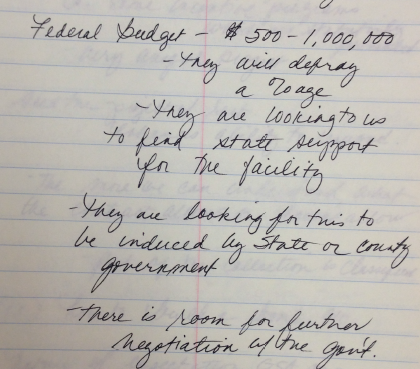 Federal budget - $ 500 - 1,000,000
- They will defray
a %age
- They are looking to us
to find state support
for the facility
- They are looking for this to
be induced by State or county
government
- There is room for further
negotiation w/ the gov't.